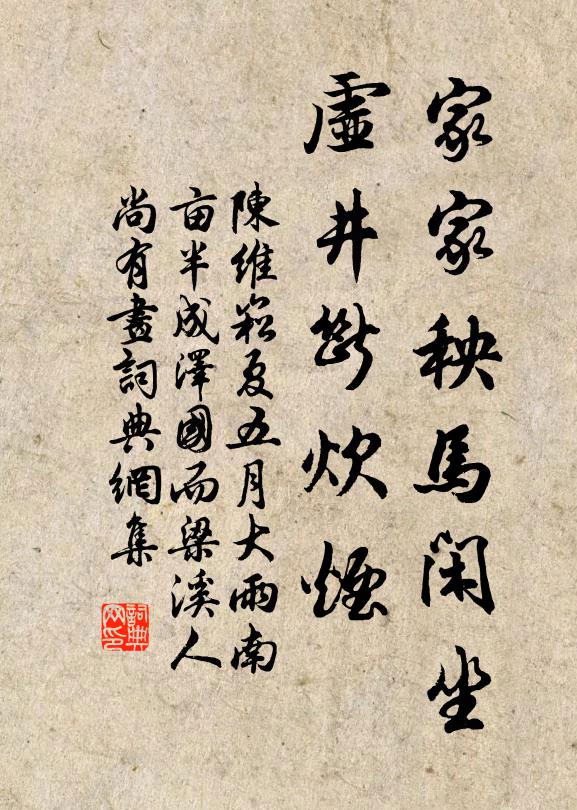 家家秧馬閑坐
虛井斷炊煙
陳維崧夏五月大雨南
亩半成澤國而梁溪人
尚有畫詞典網集
詞典
网印